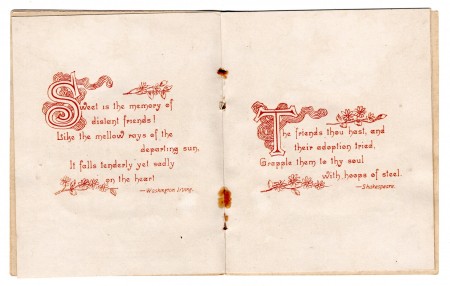 Sweet is the memory of
distant friends!
Like the mellow rays of the
departing sun,
It falls tenderly yet sadly
on the heart
—Washington Irving.
The friends thou hast, and
their adoption tried,
Grapple them to thy soul
with hoops of steel.
—Shakespeare.